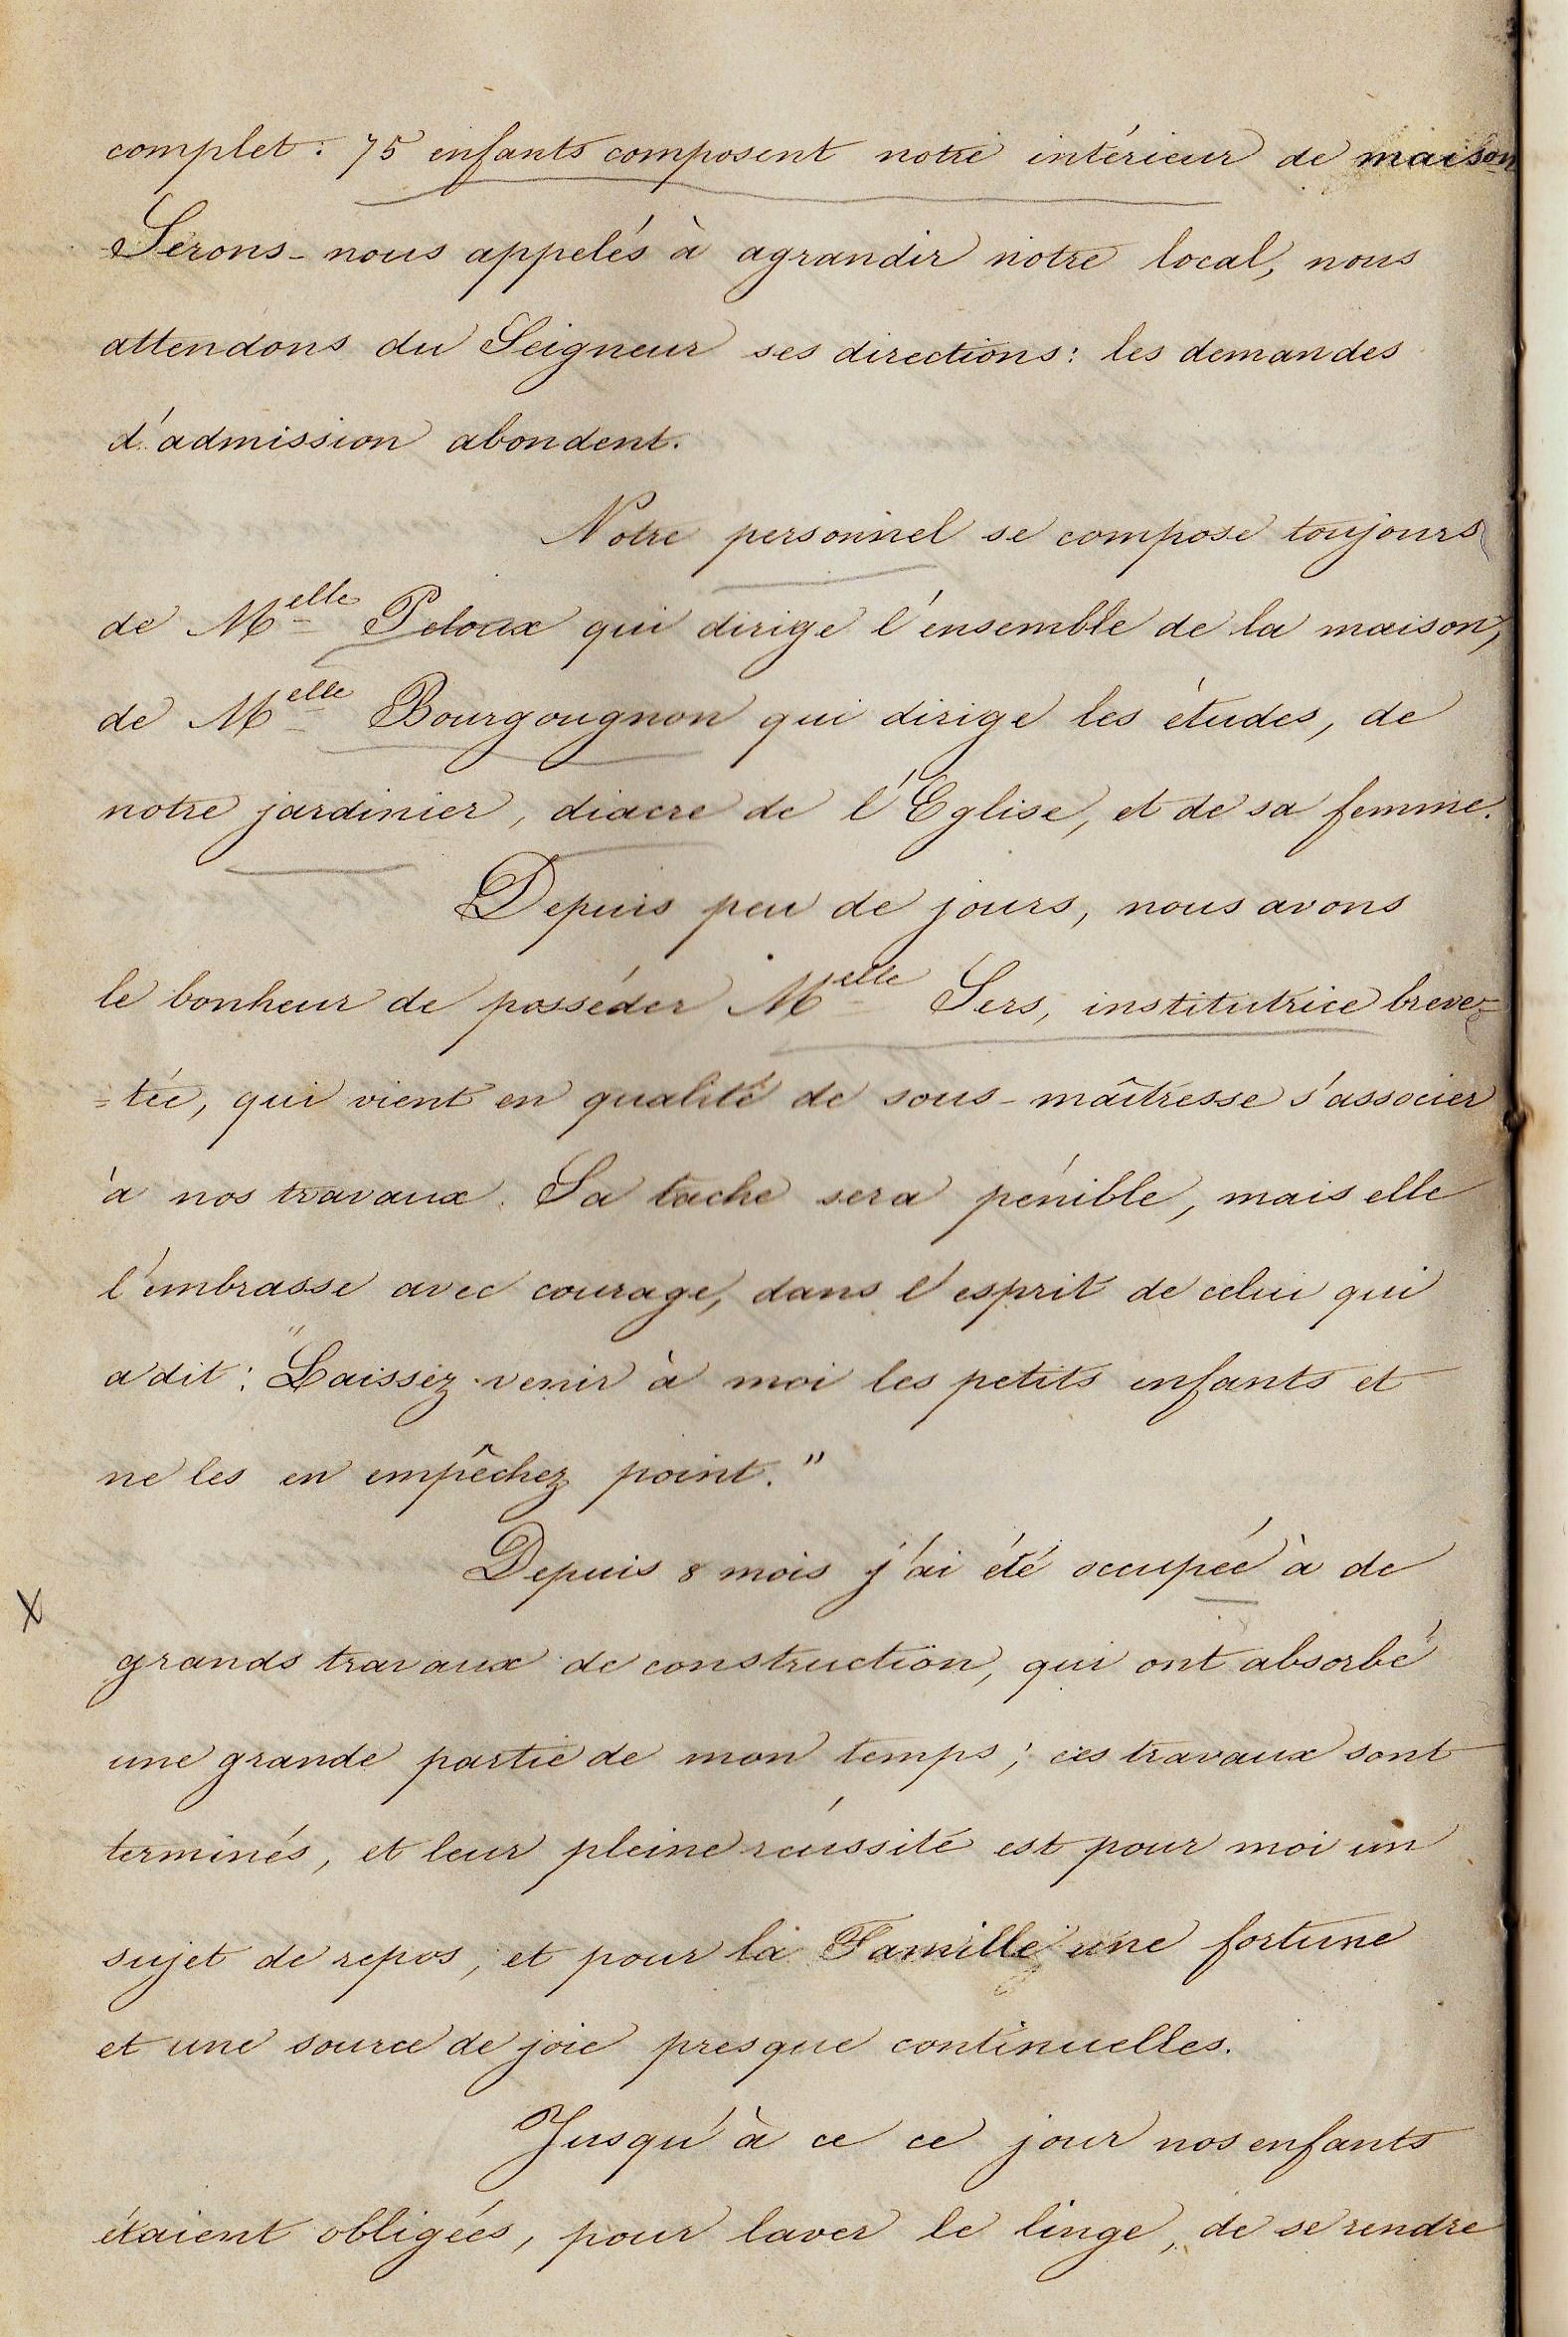 complet : 75 enfants composent notre intérieur de maison
Serons-nous appelés à agrandir notre local, nous
attendons du Seigneur ses directions : les demandes
d'admission abondent.
Notre personnel se compose toujours
de Melle Peloux qui dirige l'ensemble de la maison,
de Melle Bourgougnon qui dirige les études, de
notre jardinier, diacre de l'Eglise, et de sa femme.
Depuis peu de jours, nous avons
le bonheur de posséder Melle Sers, institutrice breve=
=tée, qui vient en qualité de sous-maîtresse s'associer
à nos travaux. Sa tache sera pénible, mais elle
l'embrasse avec courage, dans l'esprit de celui qui
a dit : "Laissez venir à moi les petits enfants et
ne les en empêchez point."
Depuis 8 mois j'ai été occupée à de
X
grands travaux de construction, qui ont absorbé
une grande partie de mon temps ; ces travaux sont
terminés, et leur pleine réussité est pour moi un
sujet de repos, et pour la Famille une fortune
et une source de joie presque continuelles.
Jusqu'à ce ce jour nos enfants
étaient obligées, pour laver le linge, de se rendre